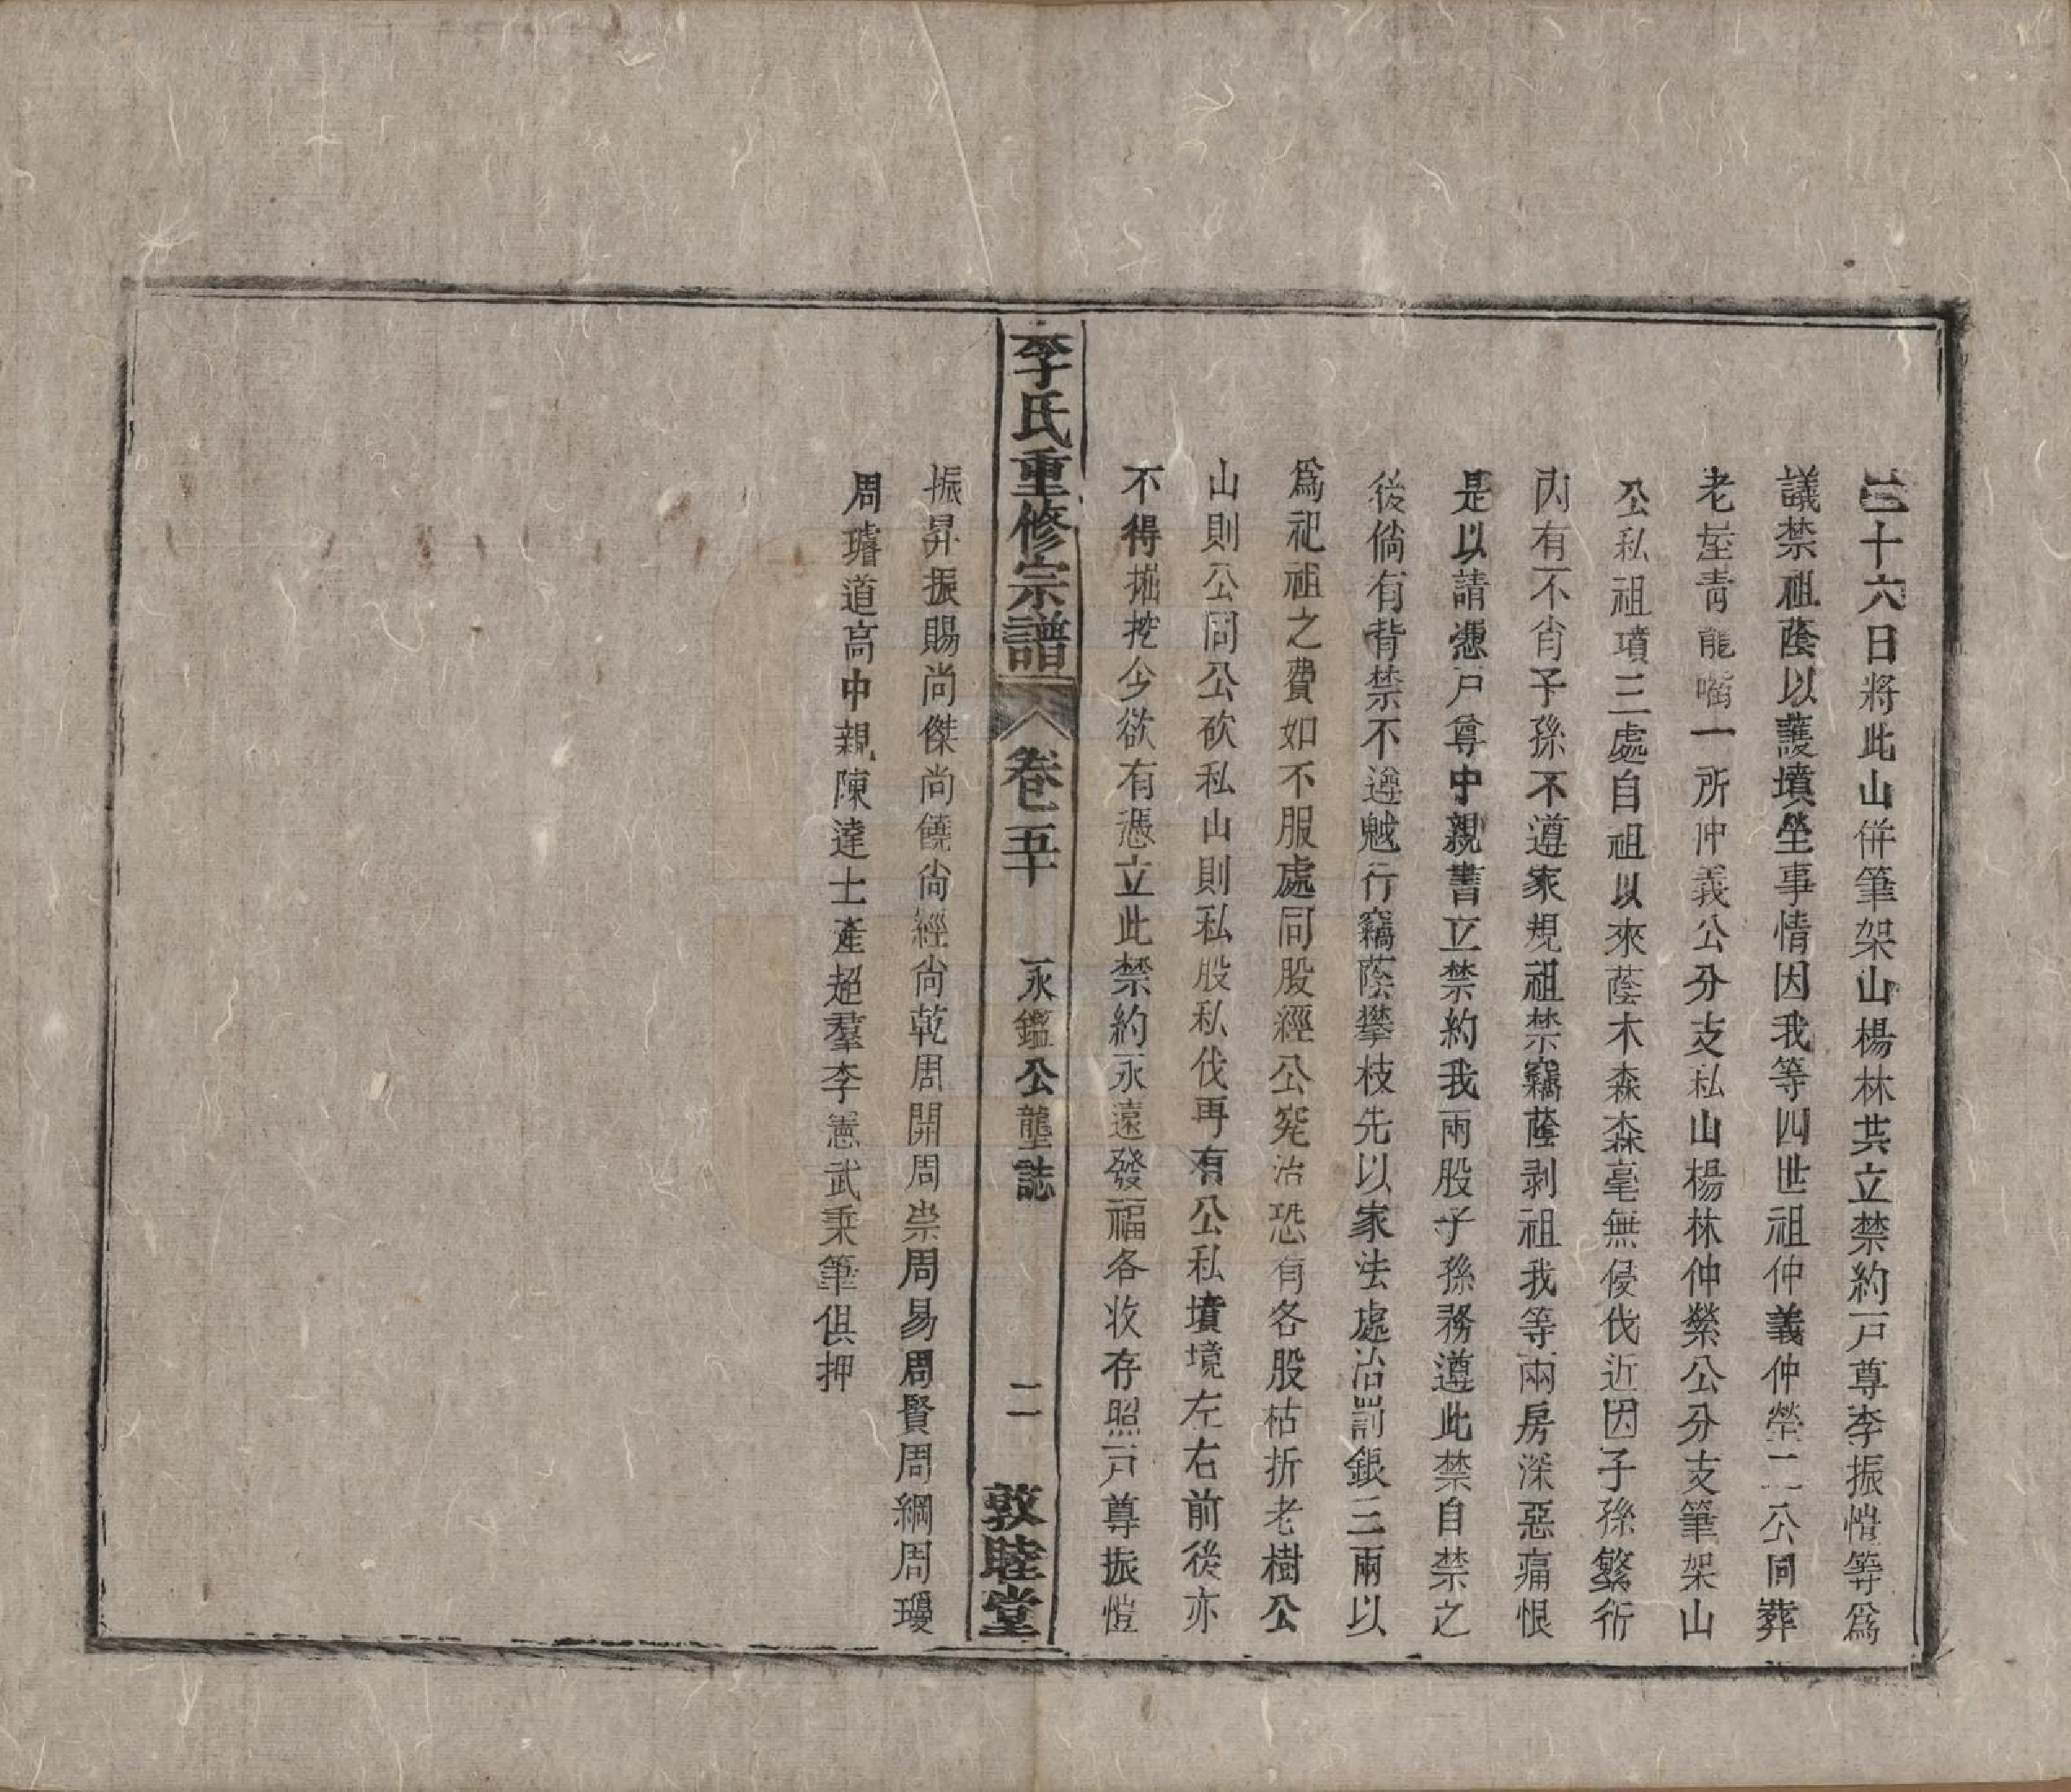 十六日將此山併筆架山楊林共立禁約戶尊李振愷等爲
議禁祖蔭以護墳塋事情因我等四世祖仲義仲榮二公同葬
老屋靑龍嘴一所仲義公分支私山楊林仲榮公分支筆架山
公私祖墳三處自祖以來蔭木森森毫無侵伐近因子孫繁衍
內有不肖子孫不遵家規祖禁竊蔭剥祖我等兩房深惡痛恨
是以請憑戶尊中親書立禁約我兩股子孫務遵此禁自禁之
後倘有背禁不遵魆行竊蔭攀枝先以家法處治罰銀三兩以
爲祀祖之費如不服處同股經公究治恐有各股枯折老樹公
山則公同公砍私山則私股私伐再有公私墳境左右前後亦
不得掘挖少欲有憑立此禁約永遠發福各收存照戶尊振愷
李氏重修宗譜 卷五十 永鑑公塋誌 二 敦睦堂
振昇振賜尚傑尚饒尙經尙乾周開周崇周易周賢周綱周瓊
周璿道高中親陳達士產超羣李憲武秉筆俱押